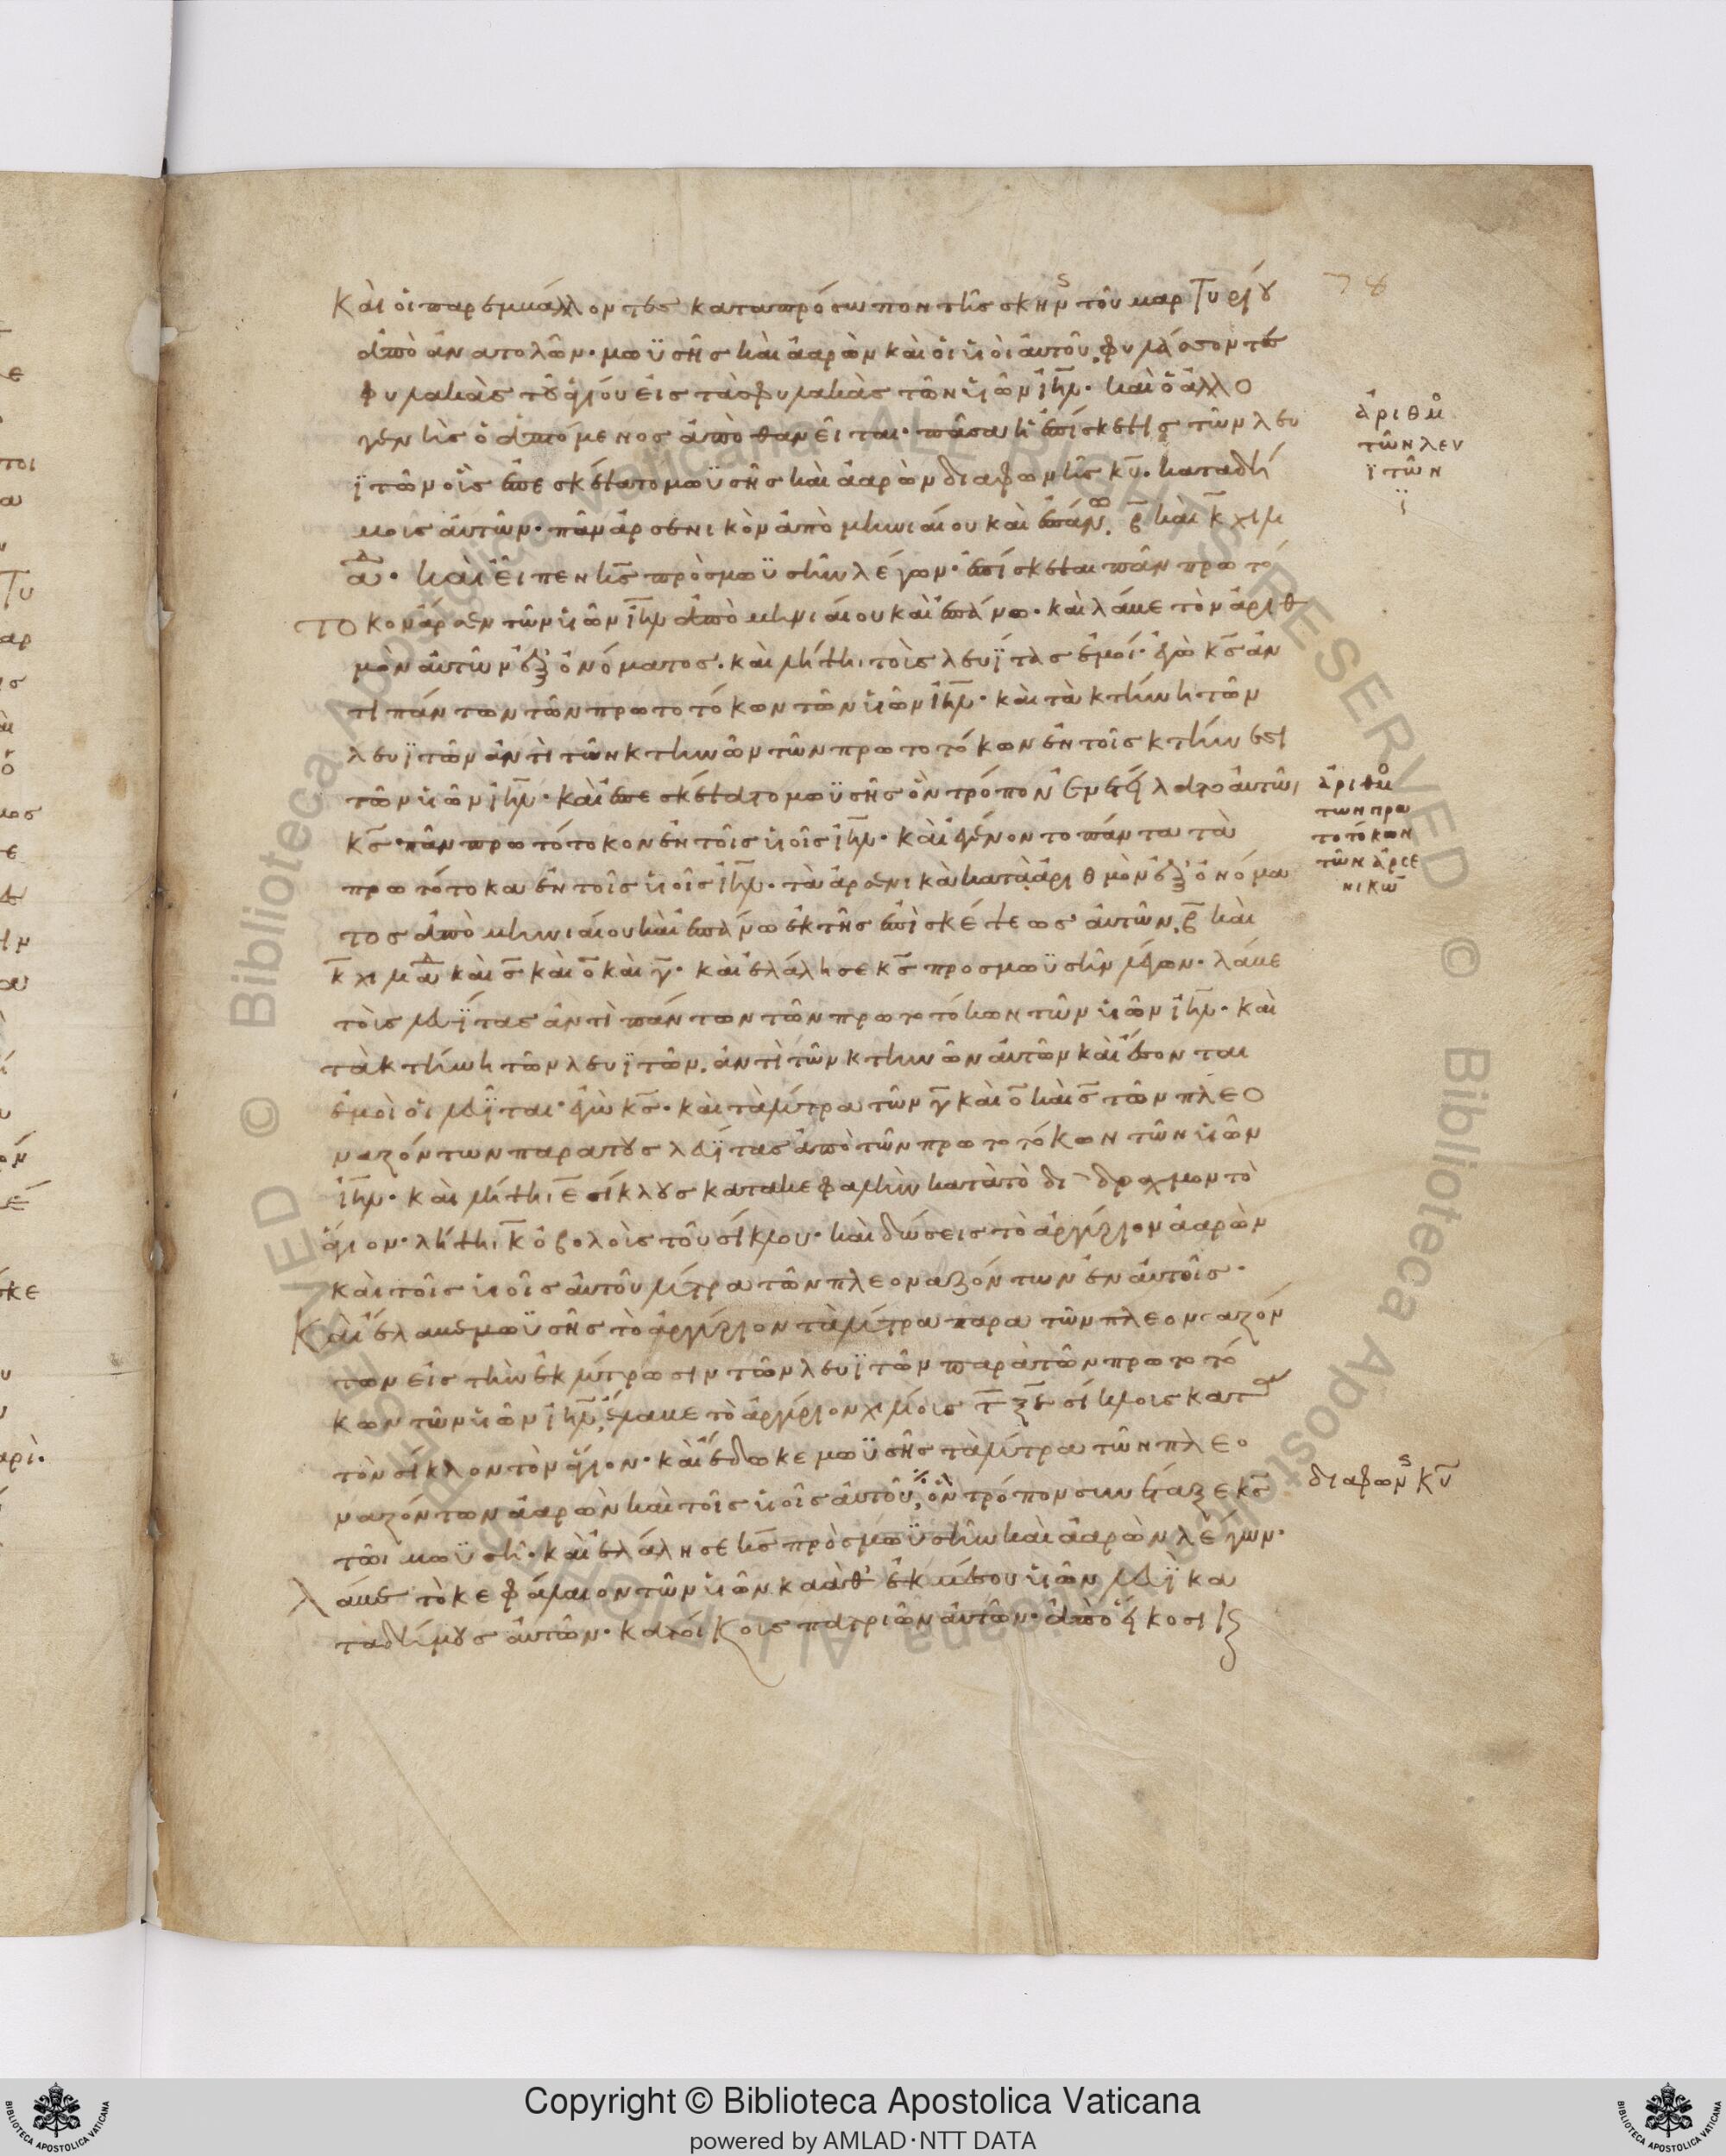 Καὶ οἱ παρεμβάλλοντες καταπρόσωπον τῆς σκην τοῦ μαρτυρίου
ἀπὸ ἀνατολῶν· μωϋσῆς καὶ ἀαρὼν καὶ οἱ υἱοὶ αὐτοῦ, φυλάσσοντες
φυλακὰς τοῦ ἁγίου εἰς τὰς φυλακὰς τῶν υἱῶν ιηλ· καὶ ὁ ἀλλο
γενὴς ὁ ἁπτόμενος ἀποθανεῖται· πᾶσα ἡ ἐπίσκεψις τῶν λευ
ϊτῶν οὓς ἐπεσκέψατο μωϋσῆς καὶ ἀαρὼν διαφωνῆς κυ· κατα δή
μους αὐτῶν· πᾶν ἀρσενικὸν ἀπὸ μηνιαίου καὶ ἐπάνω, β καὶ κ χιλι
αδ· καὶ εἶπεν κς πρὸς μωϋσῆν λέγων· ἐπίσκεψαι πᾶν πρωτό
τοκον ἄρσεν τῶν υἱῶν ιηλ ἀπὸ μηνιαίου καὶ ἐπάνω· καὶ λάβε τὸν ἀριθ
μὸν αὐτῶν ἐξ ὀνόματος· καὶ λήψη τοὺς λευΐτας ἐμοί· ἐγὼ κς ἀν
τὶ πάντων τῶν πρωτοτόκων τῶν υἱῶν ιηλ· καὶ τὰ κτήνη τῶν
λευϊτῶν ἀντὶ τῶν κτηνῶν τῶν πρωτοτόκων ἐν τοῖς κτήνεσι
τῶν υἱῶν ιηλ· καὶ ἐπεσκέψατο μωϋσῆς ὃν τρόπον ἐνετείλατο αὐτῶι
κς· πᾶν πρωτότοκον ἐν τοῖς υἱοῖς ιηλ· καὶ ἐγένοντο πάντα τὰ
πρωτότοκα ἐν τοῖς υἱοῖς ιηλ· τὰ ἀρσενικὰ κατὰ ἀριθμὸν ἐξ ὀνόμα
τος ἀπὸ μηνιαίου καὶ ἐπάνω ἐκ τῆς ἐπισκέψεως αὐτῶν, β καὶ
κ χιλιαδ καὶ ς καὶ ο καὶ γ· καὶ ἐλάλησε κς προς μωϋσῆν λέγων· λάβε
τοὺς λευΐτας ἀντὶ πάντων τῶν πρωτοτόκων τῶν υἱῶν ιηλ· καὶ
τὰ κτήνη τῶν λευϊτῶν, ἀντὶ τῶν κτηνῶν αὐτῶν καὶ ἔσονται
ἐμοὶ οἱ λευῖται· ἐγὼ κς· καὶ τὰ λύτρα τῶν γ καὶ ο καὶ ς τῶν πλεο
ναζόντων παρα τοὺς λευΐτας ἀπὸ τῶν πρωτοτόκων τῶν υἱῶν
ιηλ· καὶ λήψη ε σίκλους κατα κεφαλὴν κατὰ τὸ δίδραχμον τὸ
ἅγιον· λήψη, κ ὀβολοὺς τοῦ σίκλου· καὶ δώσεις τὸ ἀργύριον ἀαρὼν
καὶ τοῖς υἱοῖς αὐτοῦ λύτρα τῶν πλεοναζόντων ἐν αὐτοῖς·
Καὶ ἔλαβε μωϋσῆς τὸ ἀργύριον τὰ λύτρα παρα τῶν πλεοναζόν
των εἰς τὴν ἐκλύτρωσιν τῶν λευϊτῶν παρὰ τῶν πρωτοτό
κων τῶν υἱῶν ιηλ, ἔλαβε τὸ ἀργύριον χιλίους τ ξε σίκλους κατα
τὸν σίκλον τὸν ἅγιον· καὶ ἔδωκε μωϋσῆς τὰ λύτρα τῶν πλεο
ναζόντων ἀαρὼν καὶ τοῖς υἱοῖς αὐτοῦ, ὃν τρόπον συνέταξε κς
τῶι μωϋσῆ· καὶ ἐλάλησε κς πρὸς μωϋσῆν καὶ ἀαρὼν λέγων·
Λάβε τὸ κεφάλαιον τῶν υἱῶν καὰθ ἐκ μέσου υἱῶν λευΐ κα
τα δήμους αὐτῶν· κατ οἴκους πατριῶν αὐτῶν· ἀπὸ εἴκοσι κς
78
ἀριθμο
τῶν λευ
ϊτῶν
ἀριθμο
των πρω
τοτόκων
τῶν ἀρσε
νικῶ
διαφων κυ
Copyright © Biblioteca Apostolica Vaticana
powered by AMLAD·NTT DATA